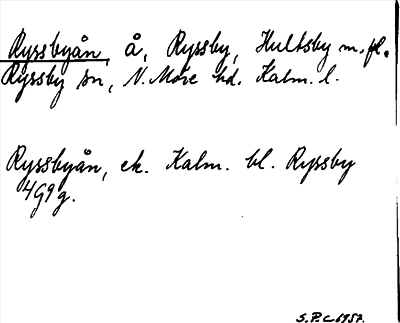 Ryssbyån, å, Ryssby, Hultsby m.fl.
Ryssby sn, N. Möre hd. Kalm. l.
Ryssbyån, ek. Kalm. bl. Ryssby
4G9g.
S.P.C 1957.